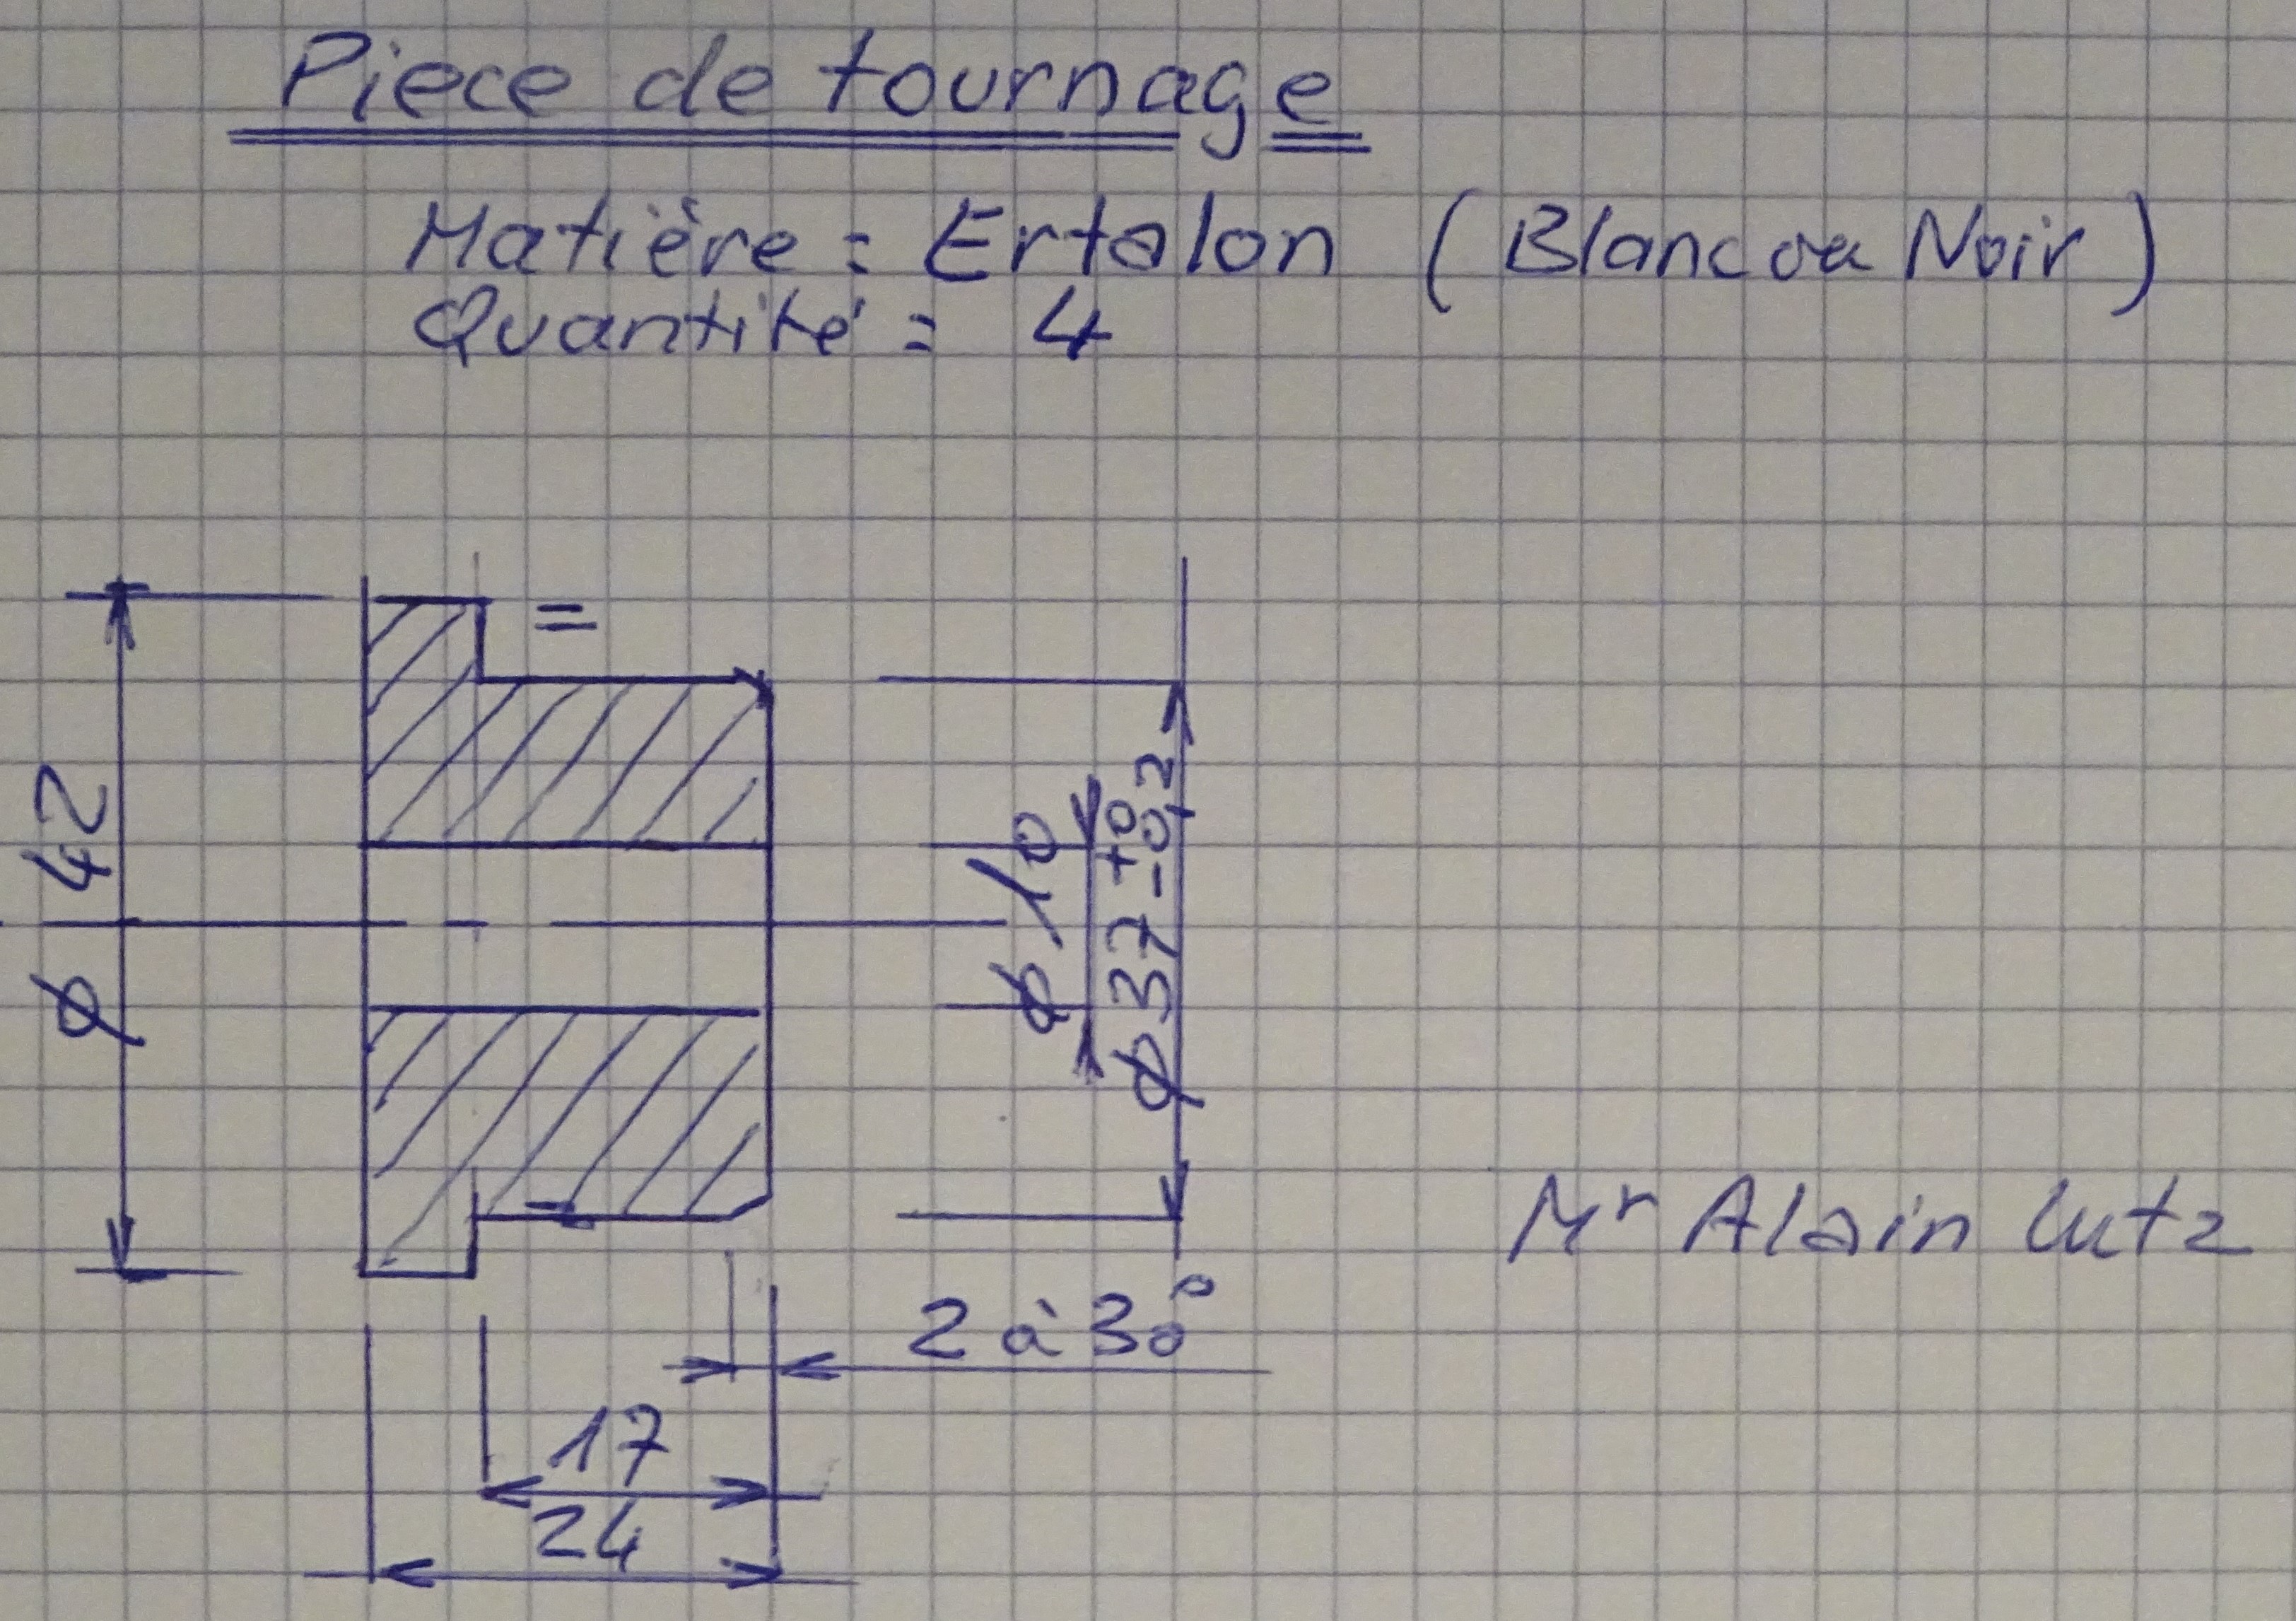 Piece de tournage
Matière = Ertalon (Blanc ou Noir)
Quantité = 4
=
ø 42
ø 10
ø 37 +0 -0,2
=
Mr Alain Lutz
2 à 30°
17
24